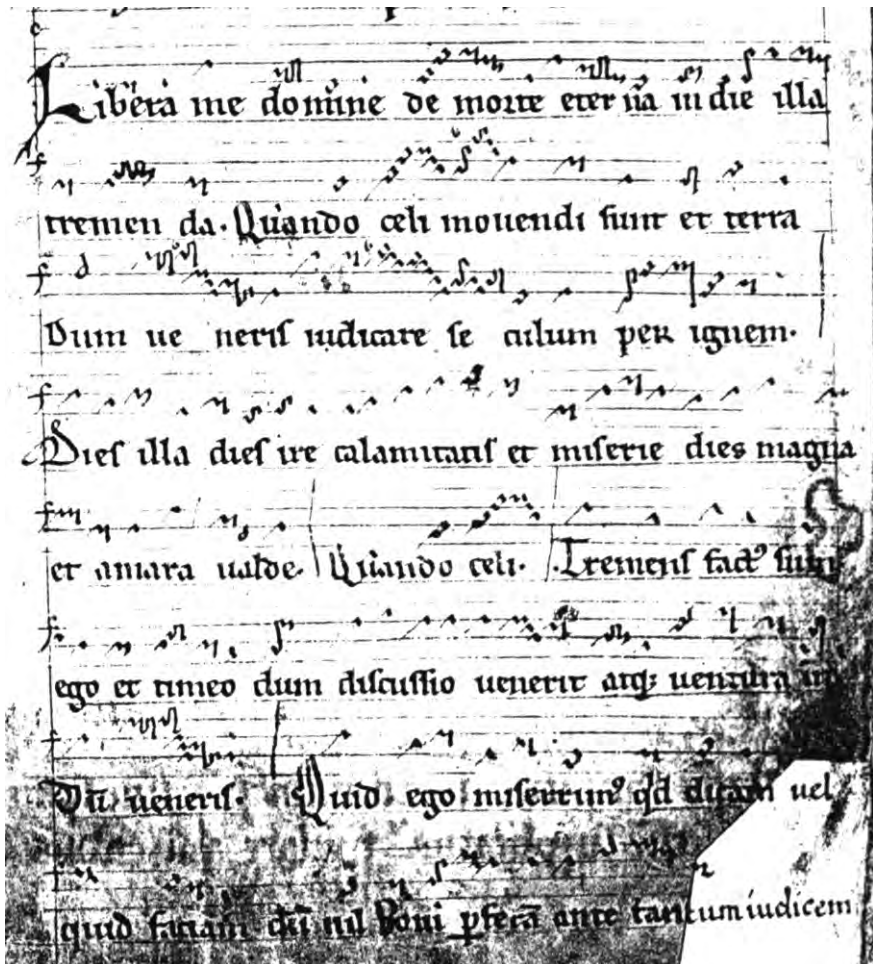 Libera me domine de morte eterna in die illa
tremen da. Quando celi mouendi sunt et terra
Dum ue neris iudicare se culum per ignem.
Dies illa dies ire calamitatis et miserie dies magna
et amara ualde. Quando celi. Tremens fact⁹ sum
ego et timeo dum discussio uenerit atq; uentura
Dū ueneris. Quid ego miserrim⁹ qd dicam uel
quid faciam dū nil boni pferā ante tantum iudicem